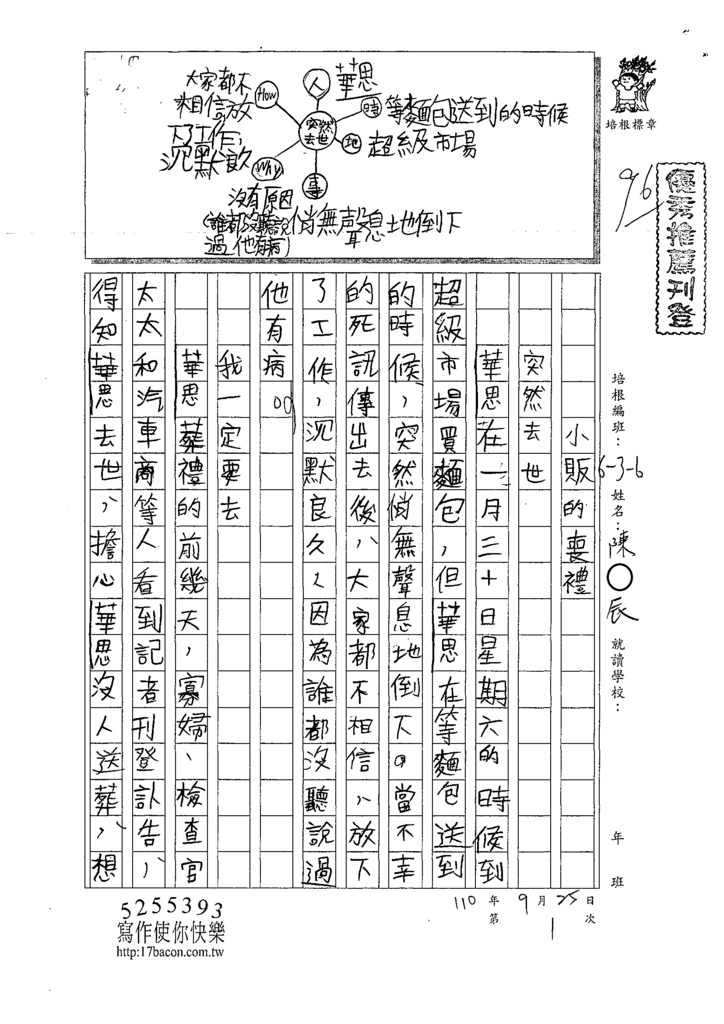 大家都不
相信放
下工作,
沉默良久
How
人
華思
時
等麵包送到的時候
突然
去世
地
超級市場
Why
事
沒有原因
(誰都沒聽說
過他有病)
悄無聲息地倒下
培根標章
96
優秀推薦刊登
培根編班:6-3-6 姓名:陳○辰 就讀學校: 年 班
小販的喪禮
突然去世
華思在一月三十日星期六的時候到
超級市場買麵包,但華思在等麵包送到
的時候,突然悄無聲息地倒下。當不幸
的死訊傳出去後,大家都不相信,放下
了工作,沉默良久,因為誰都沒聽說過
他有病。
我一定要去
華思葬禮的前幾天,寡婦、檢查官
太太和汽車商等人看到記者刊登訃告,
得知華思去世,擔心華思沒人送葬,想
110年9月25日
第1次
5255393
寫作使你快樂
http:17bacon.com.tw